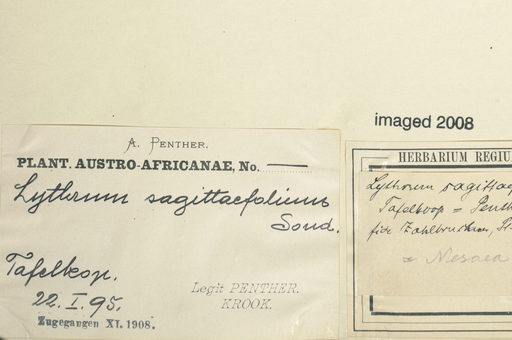 imaged 2008
A. PENTHER.
PLANT. AUSTRO-AFRICANAE, No. —
Lythrum sagittaefolium
Sond.
Tafelkop.
22. I. 95.
Legit PENTHER.
KROOK.
Zugegangen XI. 1908.
HERBARIUM REGIU
Lythrum sagittae
Tafelkop = Penth
für Zahlbruckner,
= Nesaea